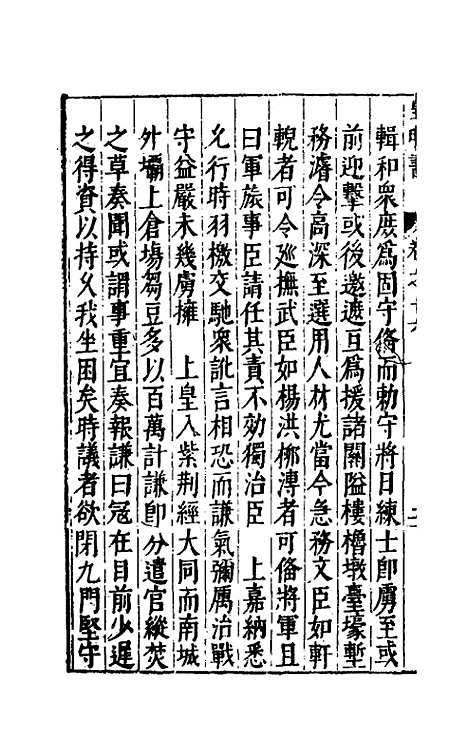 輯和衆庶爲固守俻而勅守將日練士卽虜至或
前迎擊或後邀遮互爲援諸關隘樓櫓墩臺壕塹
務濬令高深至選用人材尤當今急務文臣如軒
輗者可令廵撫武臣如楊洪栁溥者可俻將軍且
曰軍旅事臣請任其責不効獨治臣　上嘉納悉
允行時羽檄交馳衆訛言相恐而謙氣彌厲治戰
守益嚴未幾虜擁　上皇入紫荆經大同而南城
外壩上倉塲芻豆多以百萬計謙卽分遣官縱焚
之草奏聞或謂事重宜奏報謙曰冦在目前少遲
之得資以持久我坐困矣時議者欲閉九門堅守